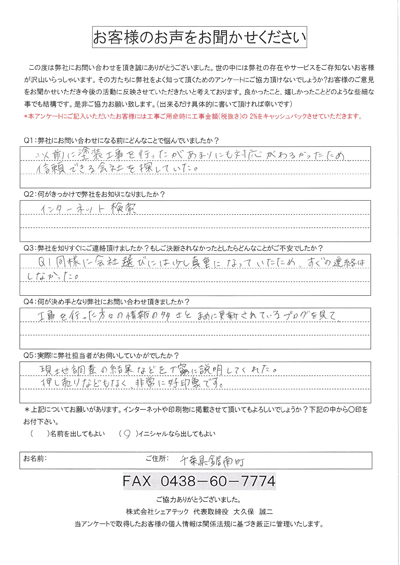 お客様のお声をお聞かせください
この度は弊社にお問い合わせを頂き誠にありがとうございました。世の中には弊社の存在やサービスをご存知ないお客様
が沢山いらっしゃいます。その方たちに弊社をよく知って頂くためのアンケートにご協力頂けないでしょうか?お客様のご意見
をお聞かせいただき今後の活動に反映させていただきたいと考えております。良かったこと、嬉しかったことどのような些細な
事でも結構です。是非ご協力お願い致します。(出来るだけ具体的に書いて頂ければ幸いです)
*本アンケートにご記入いただいたお客様には工事ご用命時に工事金額(税抜き)の2%をキャッシュバックさせていただきます。
Q1:弊社にお問い合わせになる前にどんなことで悩んでいましたか?
以前に塗装工事を行ったがあまりにも対応がわるかったため
信頼できる会社を探していた。
Q2:何がきっかけで弊社をお知りになりましたか?
インターネット検索
Q3:弊社を知りすぐにご連絡頂けましたか?もしご決断されなかったとしたらどんなことがご不安でしたか?
Q1同様に会社選びには少し慎重になっていたため、すぐの連絡は
しなかった。
Q4:何が決め手となり弊社にお問い合わせ頂きましたか?
工事を行った方々の情報の多さとまめに更新されているブログを見て
Q5:実際に弊社担当者がお伺いしていかがでしたか?
現地調査の結果などを丁寧に説明してくれた。
押し売りなどもなく、非常に好印象です。
*上記についてお願いがあります。インターネットや印刷物に掲載させて頂いてもよろしいでしょうか?下記の中から〇印を
お付下さい。
( )名前を出してもよい (〇)イニシャルなら出してもよい
お名前: ご住所: 千葉県鋸南町
FAX 0438-60-7774
ご協力ありがとうございました。
株式会社シェアテック 代表取締役 大久保 誠二
当アンケートで取得したお客様の個人情報は関係法規に基づき厳正に管理いたします。